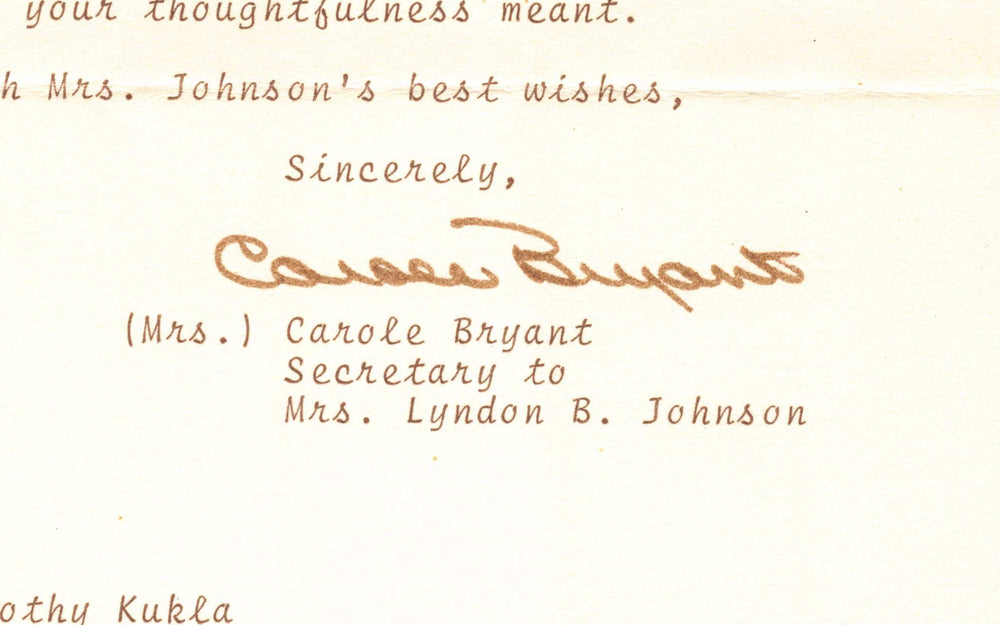 your thoughtfulness meant.
h Mrs. Johnson's best wishes,
Sincerely,
Carole Bryant
(Mrs.) Carole Bryant
Secretary to
Mrs. Lyndon B. Johnson
othy Kukla